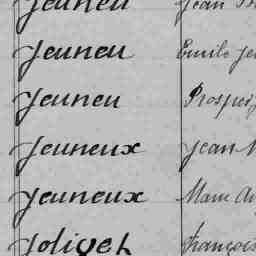 Jeuneu Jean
Jeuneu Emile Je
Jeuneu Prosper
Jeuneux Jean
Jeuneux Marc Au
Jolivet François